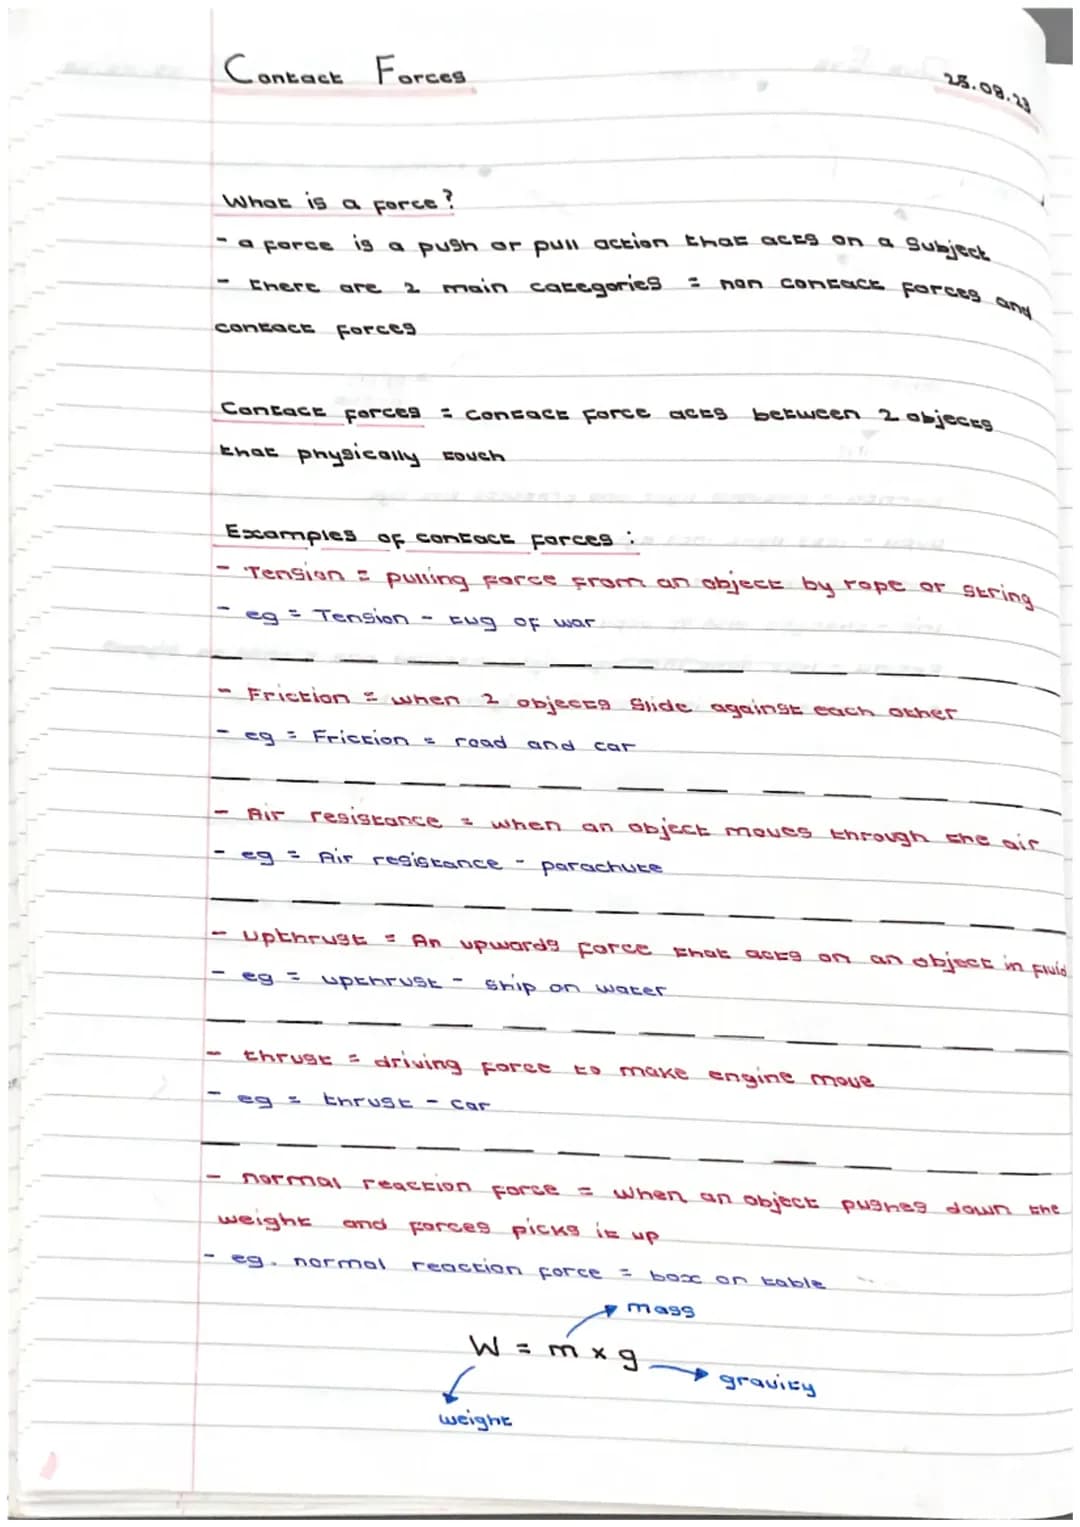 Contact Forces
25.08.23
What is a force?
- a force is a push or pull action that acts on a Subject
- there are 2 main categories = non contact forces and
contact forces
Contact forces = contact force acts between 2 objects
that physically touch
Examples of contact forces :
- Tension = pulling force from an object by rope or string
- eg = Tension - tug of war
- Friction = when 2 objects Slide against each other
- eg = Friction = road and car
- Air resistance = when an object moves through the air
- eg = Air resistance - parachute
- upthrust = An upwards force that acts on an object in fluid
- eg = upthrust - ship on water
- thrust = driving force to make engine move
- eg = thrust - car
- normal reaction force = when an object pushes down the
weight and forces picks it up
- eg. normal reaction force = box on table
mass
W = m x g
gravity
weight